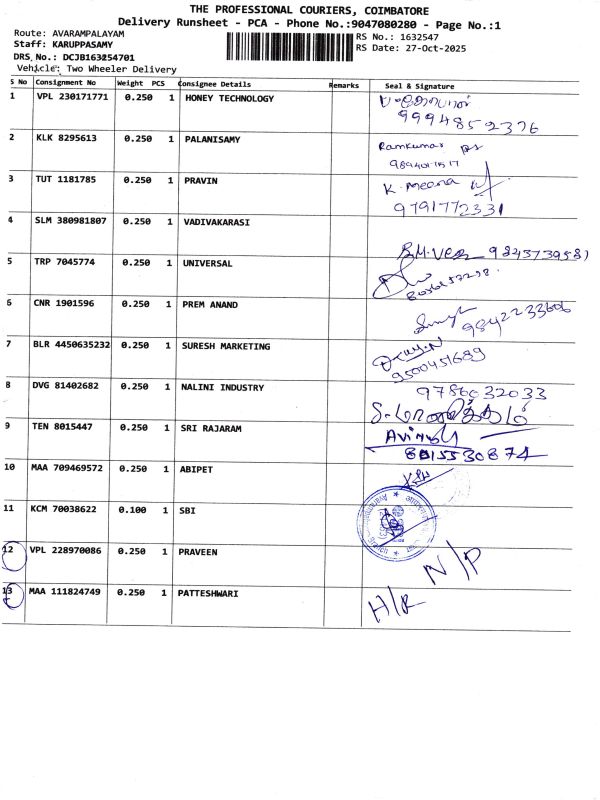 THE PROFESSIONAL COURIERS, COIMBATORE
Delivery Runsheet - PCA - Phone No.:9047080280 - Page No.:1
Route: AVARAMPALAYAM
RS No.: 1632547
Staff: KARUPPASAMY
RS Date: 27-Oct-2025
DRS No.: DCJB163254701
Vehicle: Two Wheeler Delivery
S No Consignment No Weight PCS Consignee Details Remarks Seal & Signature
1 VPL 230171771 0.250 1 HONEY TECHNOLOGY
9994852376
2 KLK 8295613 0.250 1 PALANISAMY Ramkumar
3 TUT 1181785 0.250 1 PRAVIN K. Meena
9791772331
4 SLM 380981807 0.250 1 VADIVAKARASI
5 TRP 7045774 0.250 1 UNIVERSAL
6 CNR 1901596 0.250 1 PREM ANAND
9842233606
7 BLR 4450635232 0.250 1 SURESH MARKETING
9500451689
8 DVG 81402682 0.250 1 NALINI INDUSTRY 9786032033
9 TEN 8015447 0.250 1 SRI RAJARAM
8015530874
10 MAA 709469572 0.250 1 ABIPET
11 KCM 70038622 0.100 1 SBI
12 VPL 228970086 0.250 1 PRAVEEN N/P
13 MAA 111824749 0.250 1 PATTESHWARI H/R